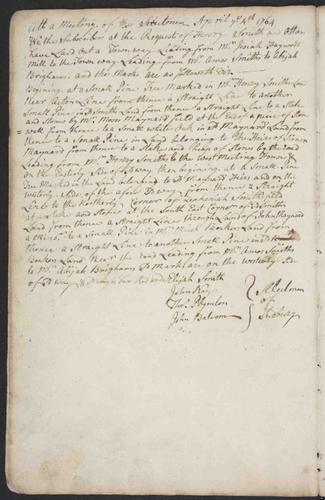 Att a Meeting of the Selectmen April ye 4th 1764
We the Subscribers at the Request of Henry Smith and others
have Laid out a Town way Leading from Mr Josiah Haywood
Mill to the Town way Leading from Mr Amos Smiths to Abijah
Brighams and the Marks are as followeth viz
Begining at a Small Pine Tree Marked in Mr Henry Smiths Land
Near Acton Line from thence a Straight Line to another
Small Pine in Smiths Land from thence a Straight Line to a Stake
and Stones by Mr Maynard field at the End of a piece of Stone
wall from thence to a Small white Oak in Maynard Land from
thence to a Small Pine in Land belonging to the Heirs of
Maynard from thence to a Stake and Heap of Stones by the road
Leading from Mr Henry Smiths to the West Meeting House
on the Easterly Side of way then begining at a Small Pine
Tree Marked in the Land belonging to Maynard Heirs and on the
westerly Side of the way from thence a Straight
Line to the Northerly Cornor of Zechariah Smiths
at a stake and Stones at the South East Cornor of Smiths
Land from thence a Straight Line through Land of John Haynard
to a Small Pine in Mr Land from
thence a Straight Line to another Small Pine in
Land Near the road Leading from Mr Amos Smiths
to Mr Abijah Brighams Marks are on the westerly Side
of way
Elijah Smith
John
Thos Plympton
John Balcom
Selectmen
of
Sudbury